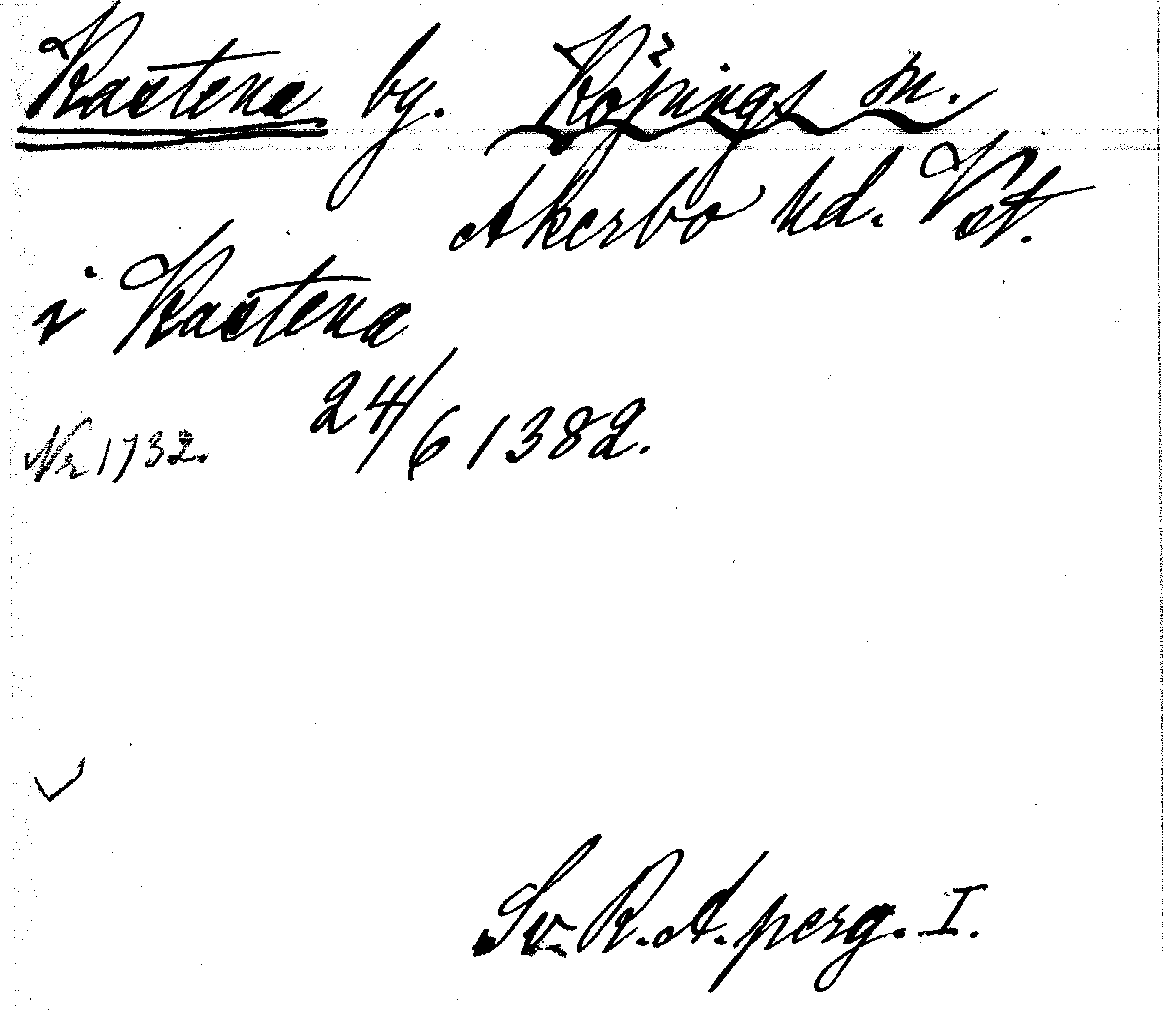 Kaetena by. Köpings sn.
Akerbo hd. Vst.
i Kaetena
24/6 1382.
Nr 1732.
Sv. R.A. perg. I.